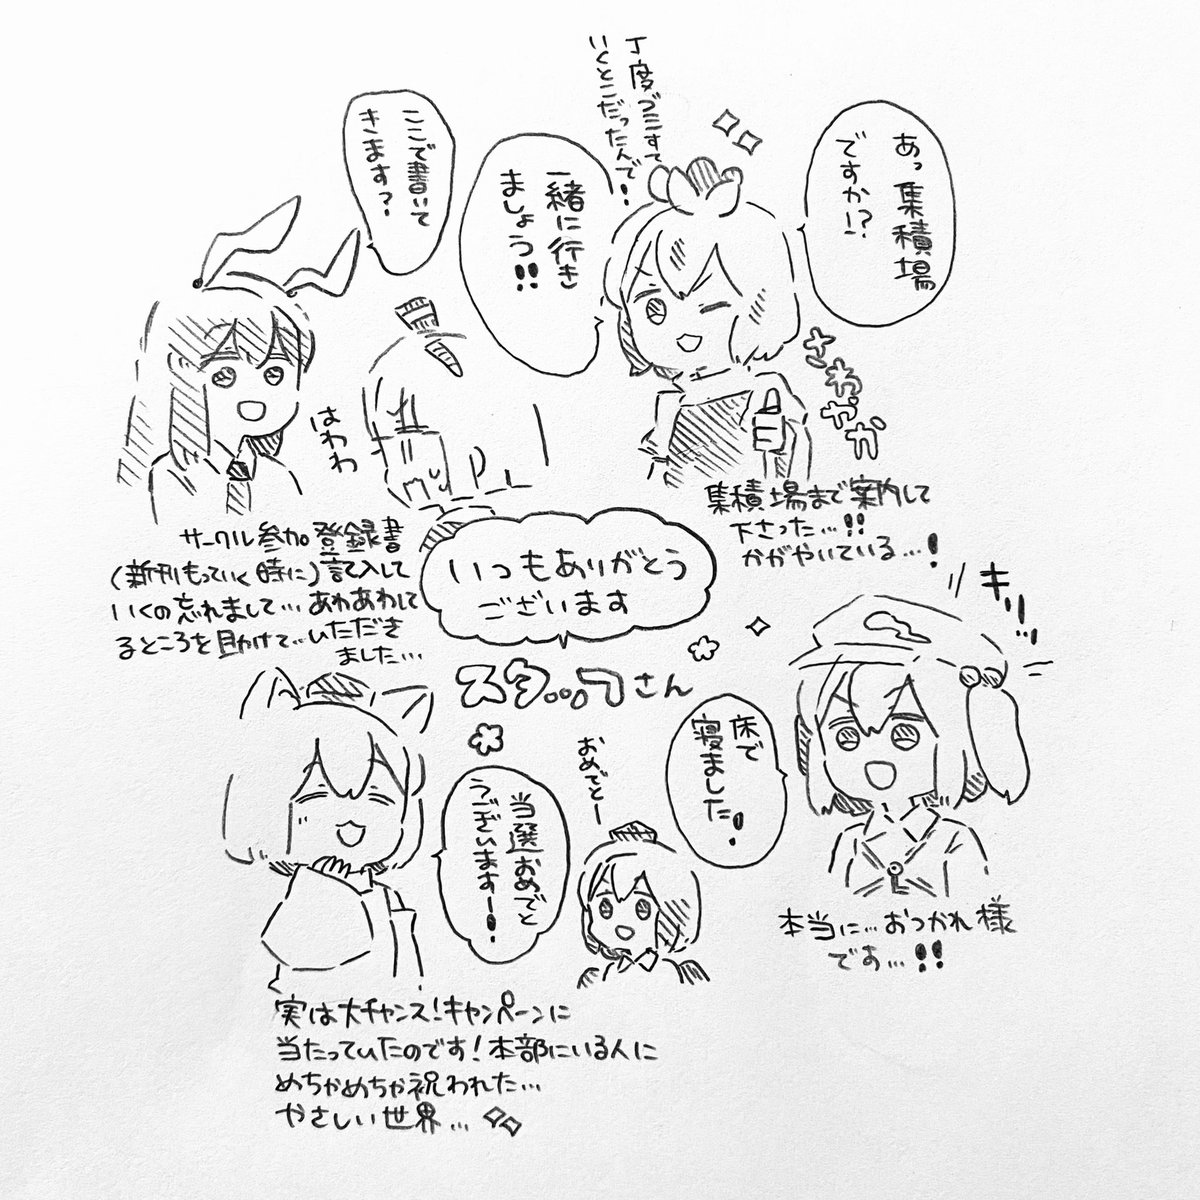 あっ集積場
ですか!?
丁度ゴミすて
いくとこだったんで!
一緒に行き
ましょう!!
さわやか
集積場まで案内して
下さった…!!
かがやいている…!
ここで書いて
きます?
はわわ
サークル参加登録書
(新刊もっていく時に)記入して
いくの忘れまして…あわあわして
るところを助けて…いただき
ました…
いつもありがとう
ございます
スタッフさん
キリッ
床で
寝ました!
本当に…おつかれ様
です…!!
おめでとー
当選おめでと
うございますー!
実は大チャンス!キャンペーンに
当たっていたのです!本部にいる人に
めちゃめちゃ祝われた…
やさしい世界…